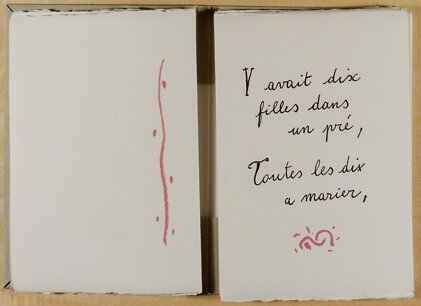 Y avait dix
filles dans
un pré,
Toutes les dix
a marier,